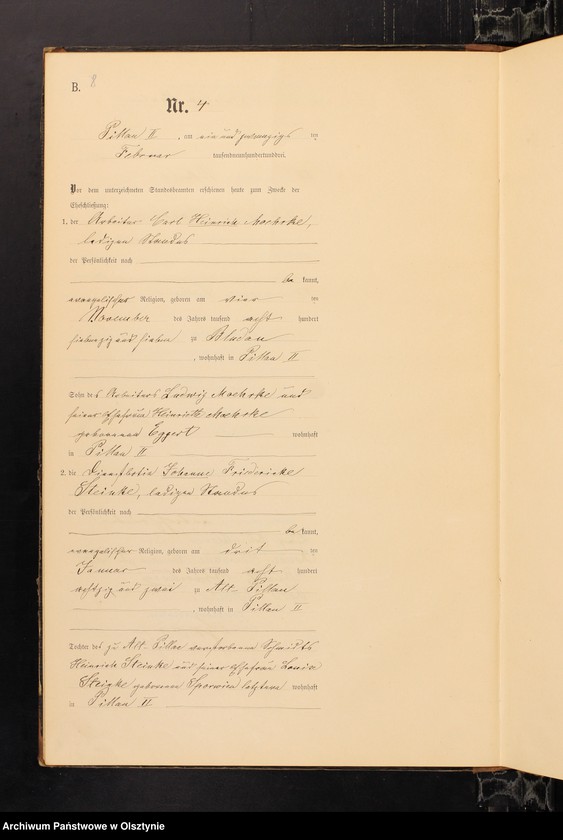 B. 8
Nr. 4
Pillau II, am ein und zwanzigsten
Februar tausendneunhundertunddrei.
Vor dem unterzeichneten Standesbeamten erschienen heute zum Zwecke der
Eheschließung:
1. der Arbeiter Carl Heinrich
ledigen Standes
der Persönlichkeit nach
be kannt,
evangelischer Religion, geboren am vier ten
November des Jahres tausend acht hundert
siebenzig und sieben zu
, wohnhaft in Pillau II
Sohn des Arbeiters Ludwig und
seiner Ehefrau Heinriette
geborenen Eggert wohnhaft
in Pillau II
2. die Johanne Friedericke
Steinke, ledigen Standes
der Persönlichkeit nach
be kannt,
evangelischer Religion, geboren am drit ten
Januar des Jahres tausend acht hundert
achtzig und zwei zu Alt Pillau
, wohnhaft in Pillau II
Tochter des zu Alt Pillau verstorbenen Schmidts
Heinrich Steinke und seiner Ehefrau
Steinke geborenen letztere wohnhaft
in Pillau II
Archiwum Państwowe w Olsztynie